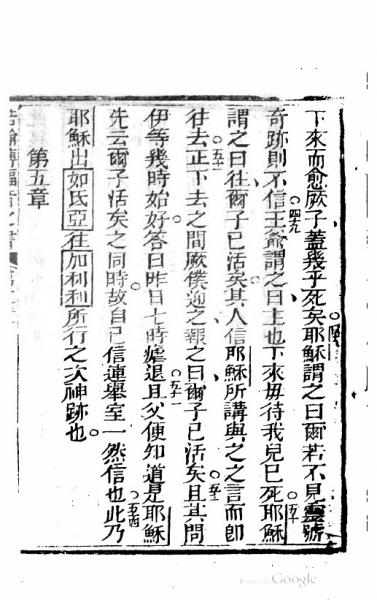 下來而愈厥子蓋幾乎死矣耶穌謂之曰爾若不見靈號
奇跡則不信王爺謂之曰主也下來毋待我兒已死耶穌
謂之曰往爾子已活矣其人信耶穌所講與之之言而卽
往去正下去之間厥僕遇之報之曰爾子已活矣且其問
伊等幾時始好答曰昨日七時瘧退且父便知道是耶穌
先云爾子活矣之同時故自己信連舉室一然信也此乃
耶穌出如氏亞往加利利所行之次神跡也
第五章
Google